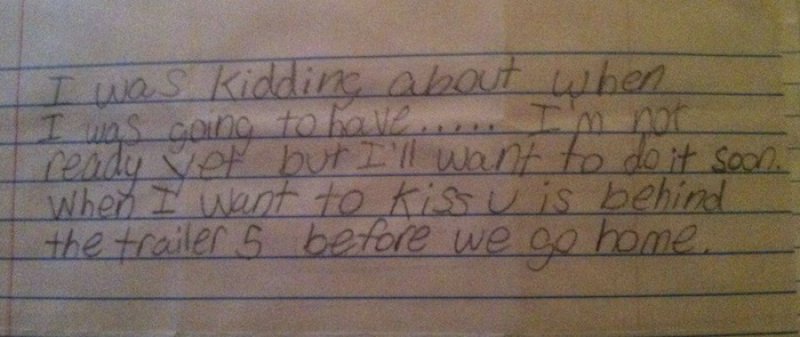 I was kidding about when
I was going to have..... I'm not
ready yet but I'll want to do it soon.
When I want to kiss U is behind
the trailer 5 before we go home.